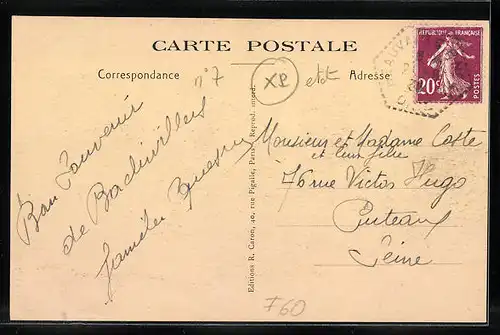 CARTE POSTALE
Correspondance
Adresse
n° 7
XP
Bon Souvenir
de Bachivillers
famille
Monsieur et Madame Coste
et leur fille
76 rue Victor Hugo
Puteaux
Seine
Editions R. Caron, 40, rue Pigalle, Paris. Reprod. interd.
REPUBLIQUE FRANÇAISE
20c
POSTES
F60